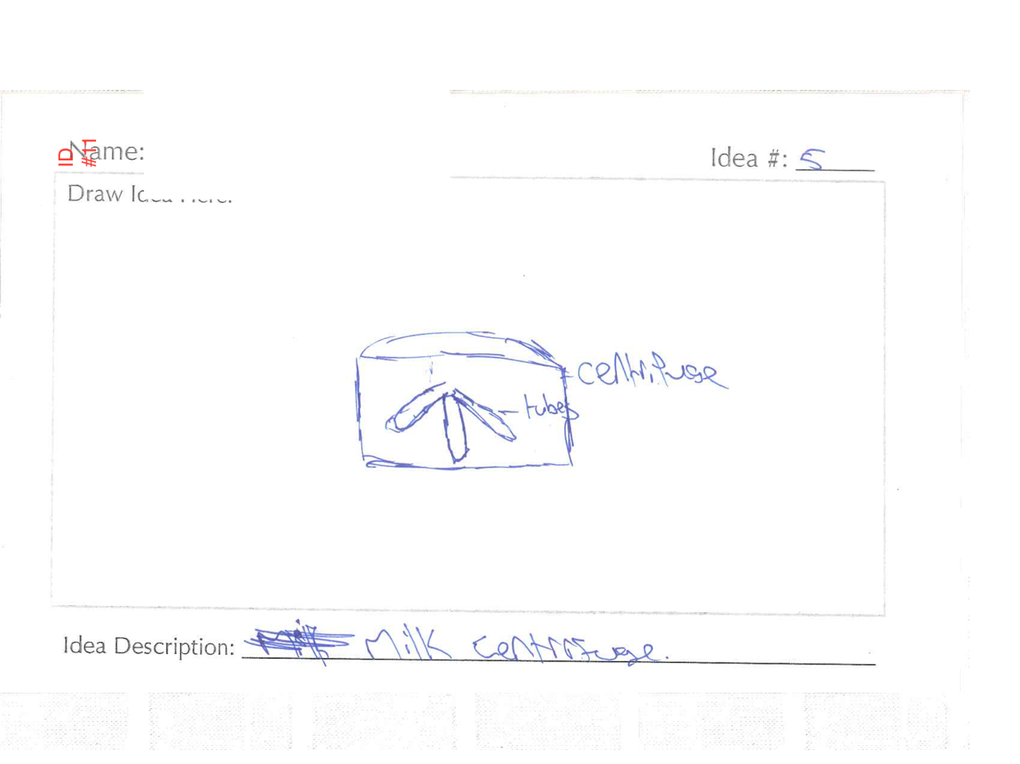 ID #11
Name:
Idea #: 5
Draw
centrifuge
tubes
Idea Description: Milk centrifuge.